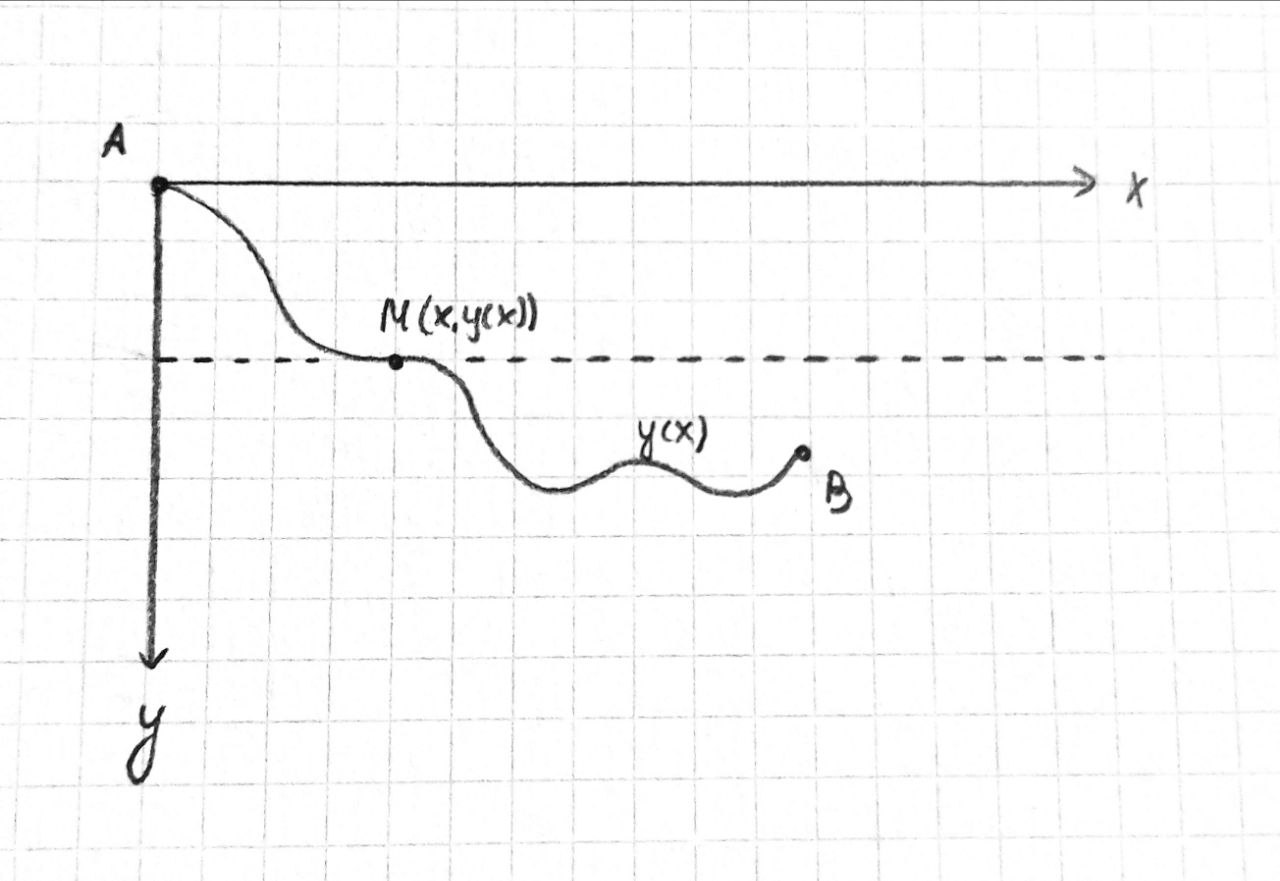 A
x
M(x,y(x))
y(x)
B
y